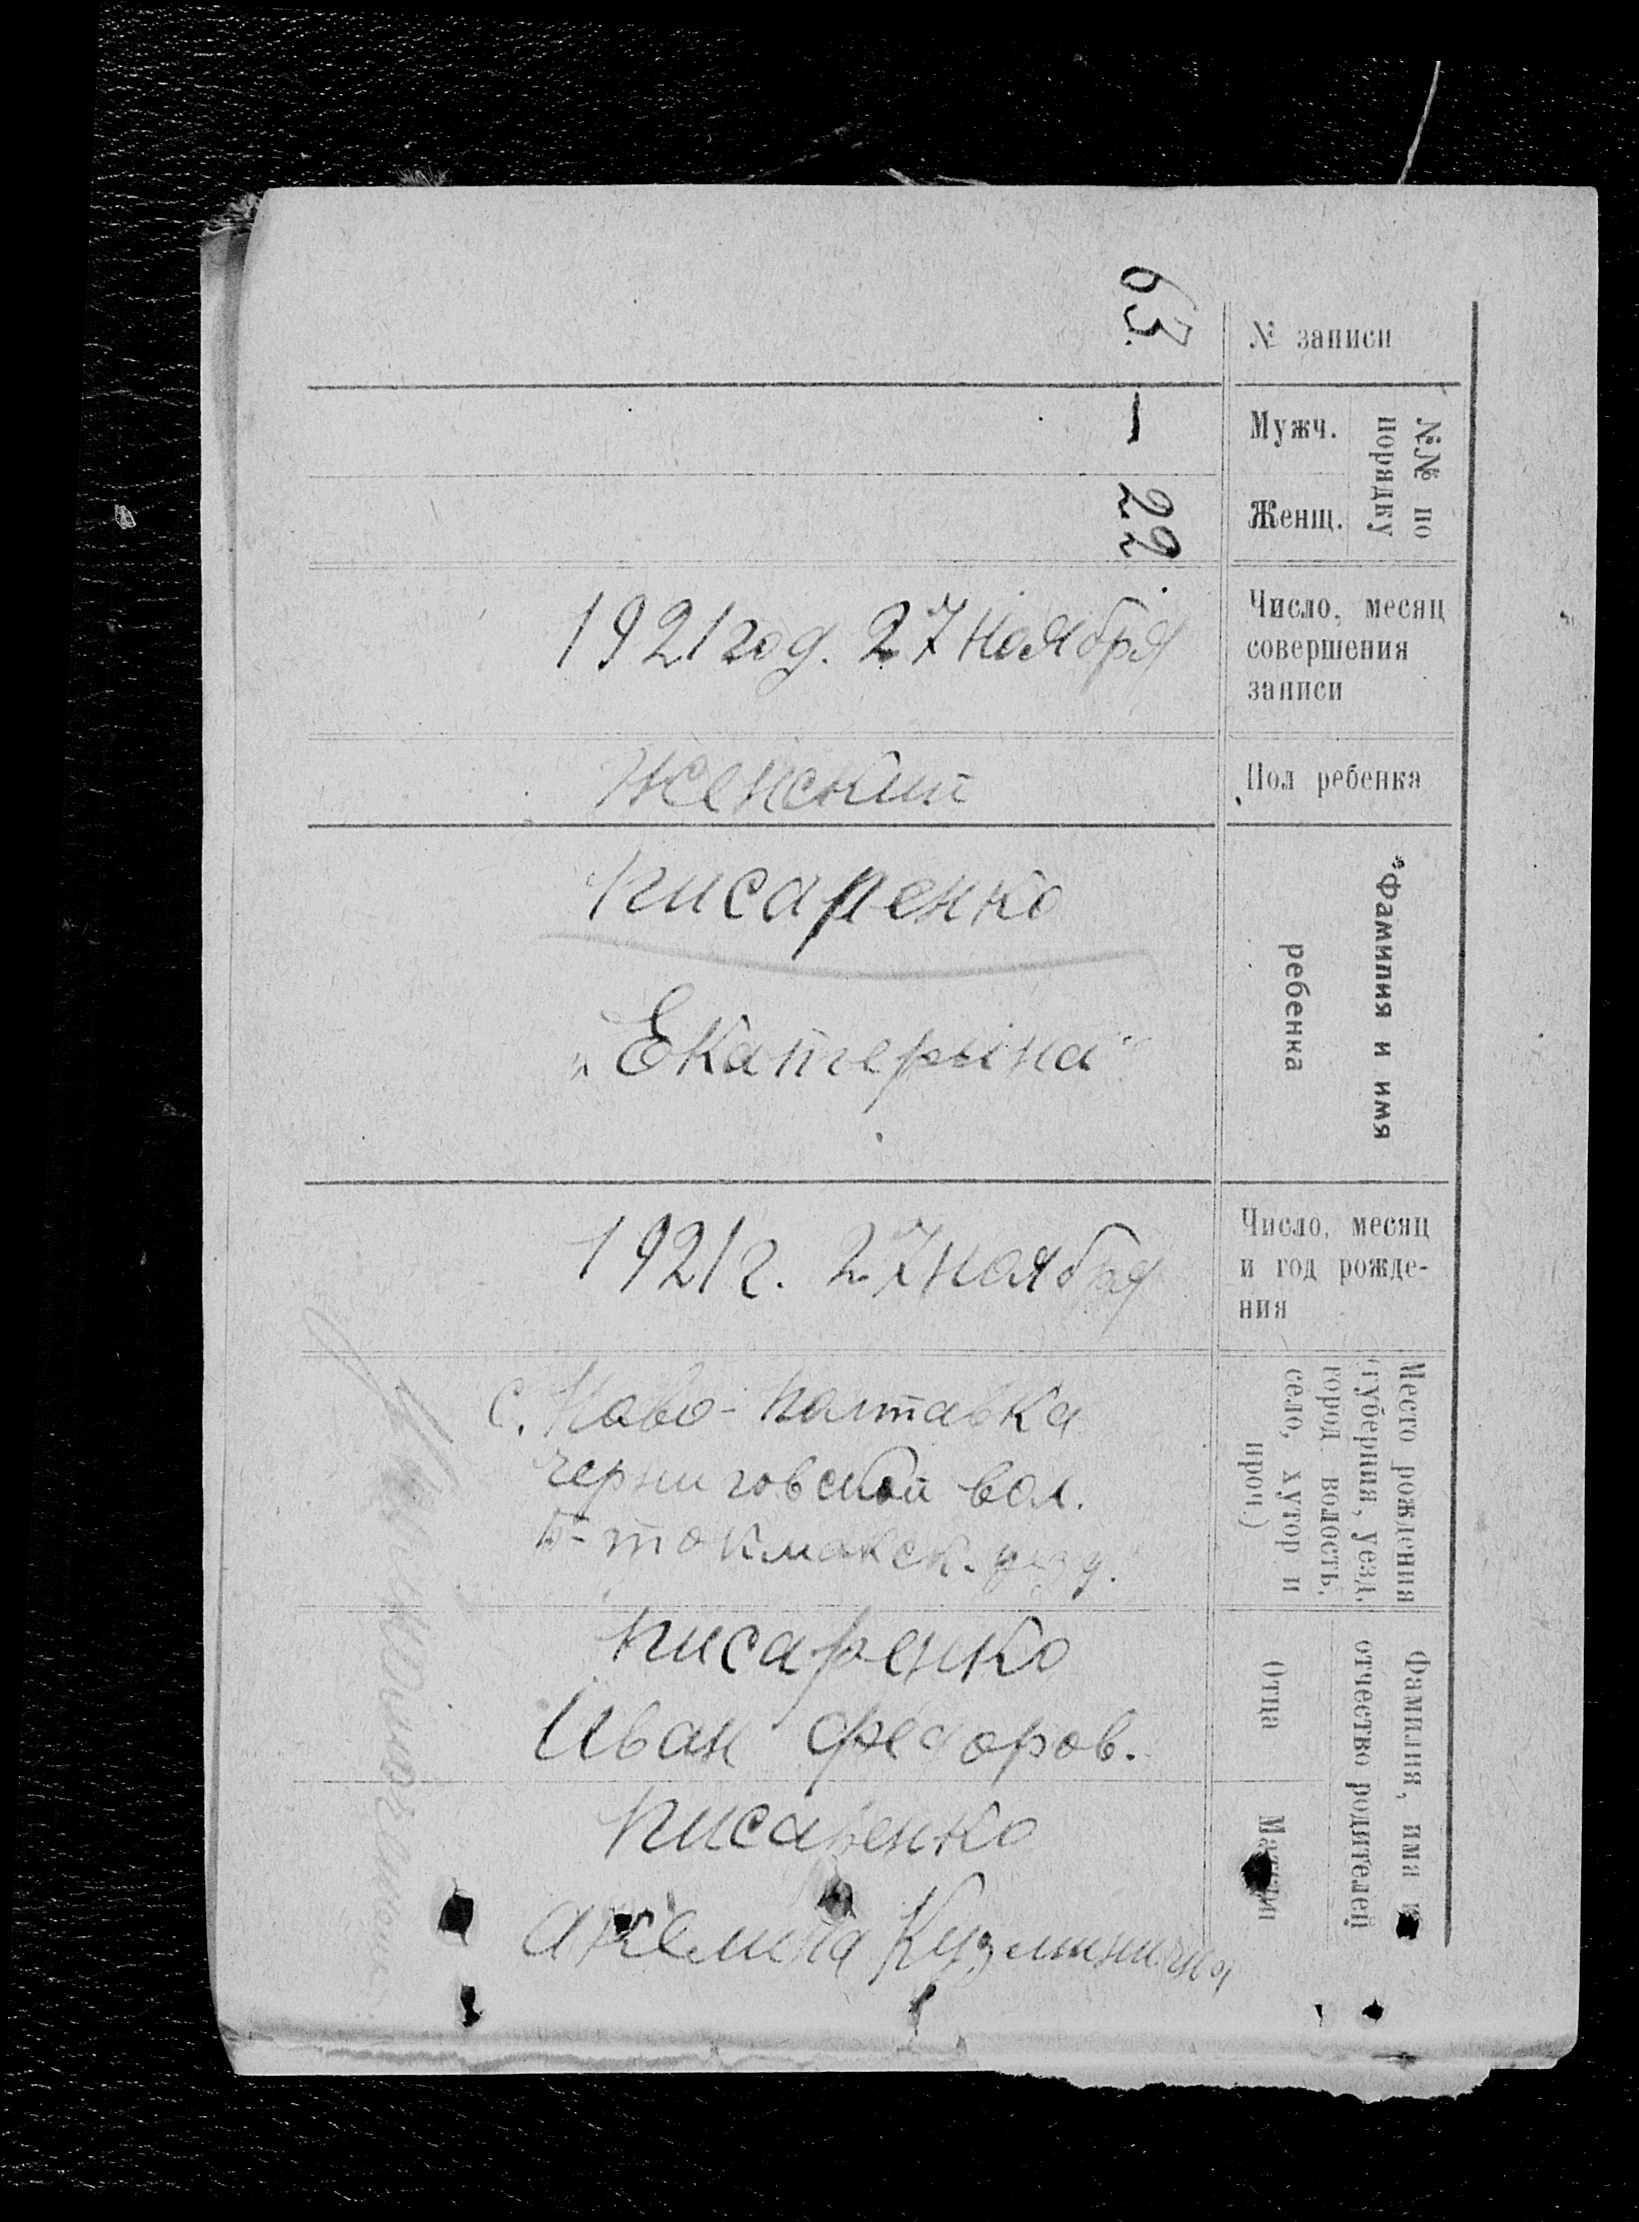 № записи
63.
№№ по
порядку
Мужч.
—
Женщ.
22
Число, месяц
совершения
записи
1921 год. 27 ноября
Пол ребенка
женский
Фамилия и имя
ребенка
Писаренко
„Екатерина“
Число, месяц
и год рожде-
ния
1921 г. 27 ноября
Место рождения
(губерния, уезд,
город волость,
село, хутор и
проч.)
с. Ново-Полтавка
Черниговской вол.
Б-токмакск. уезд.
Фамилия, имя и
отчество родителей
Отца
Писаренко
Иван Федоров.
Матери
Писаренко
Кузминична